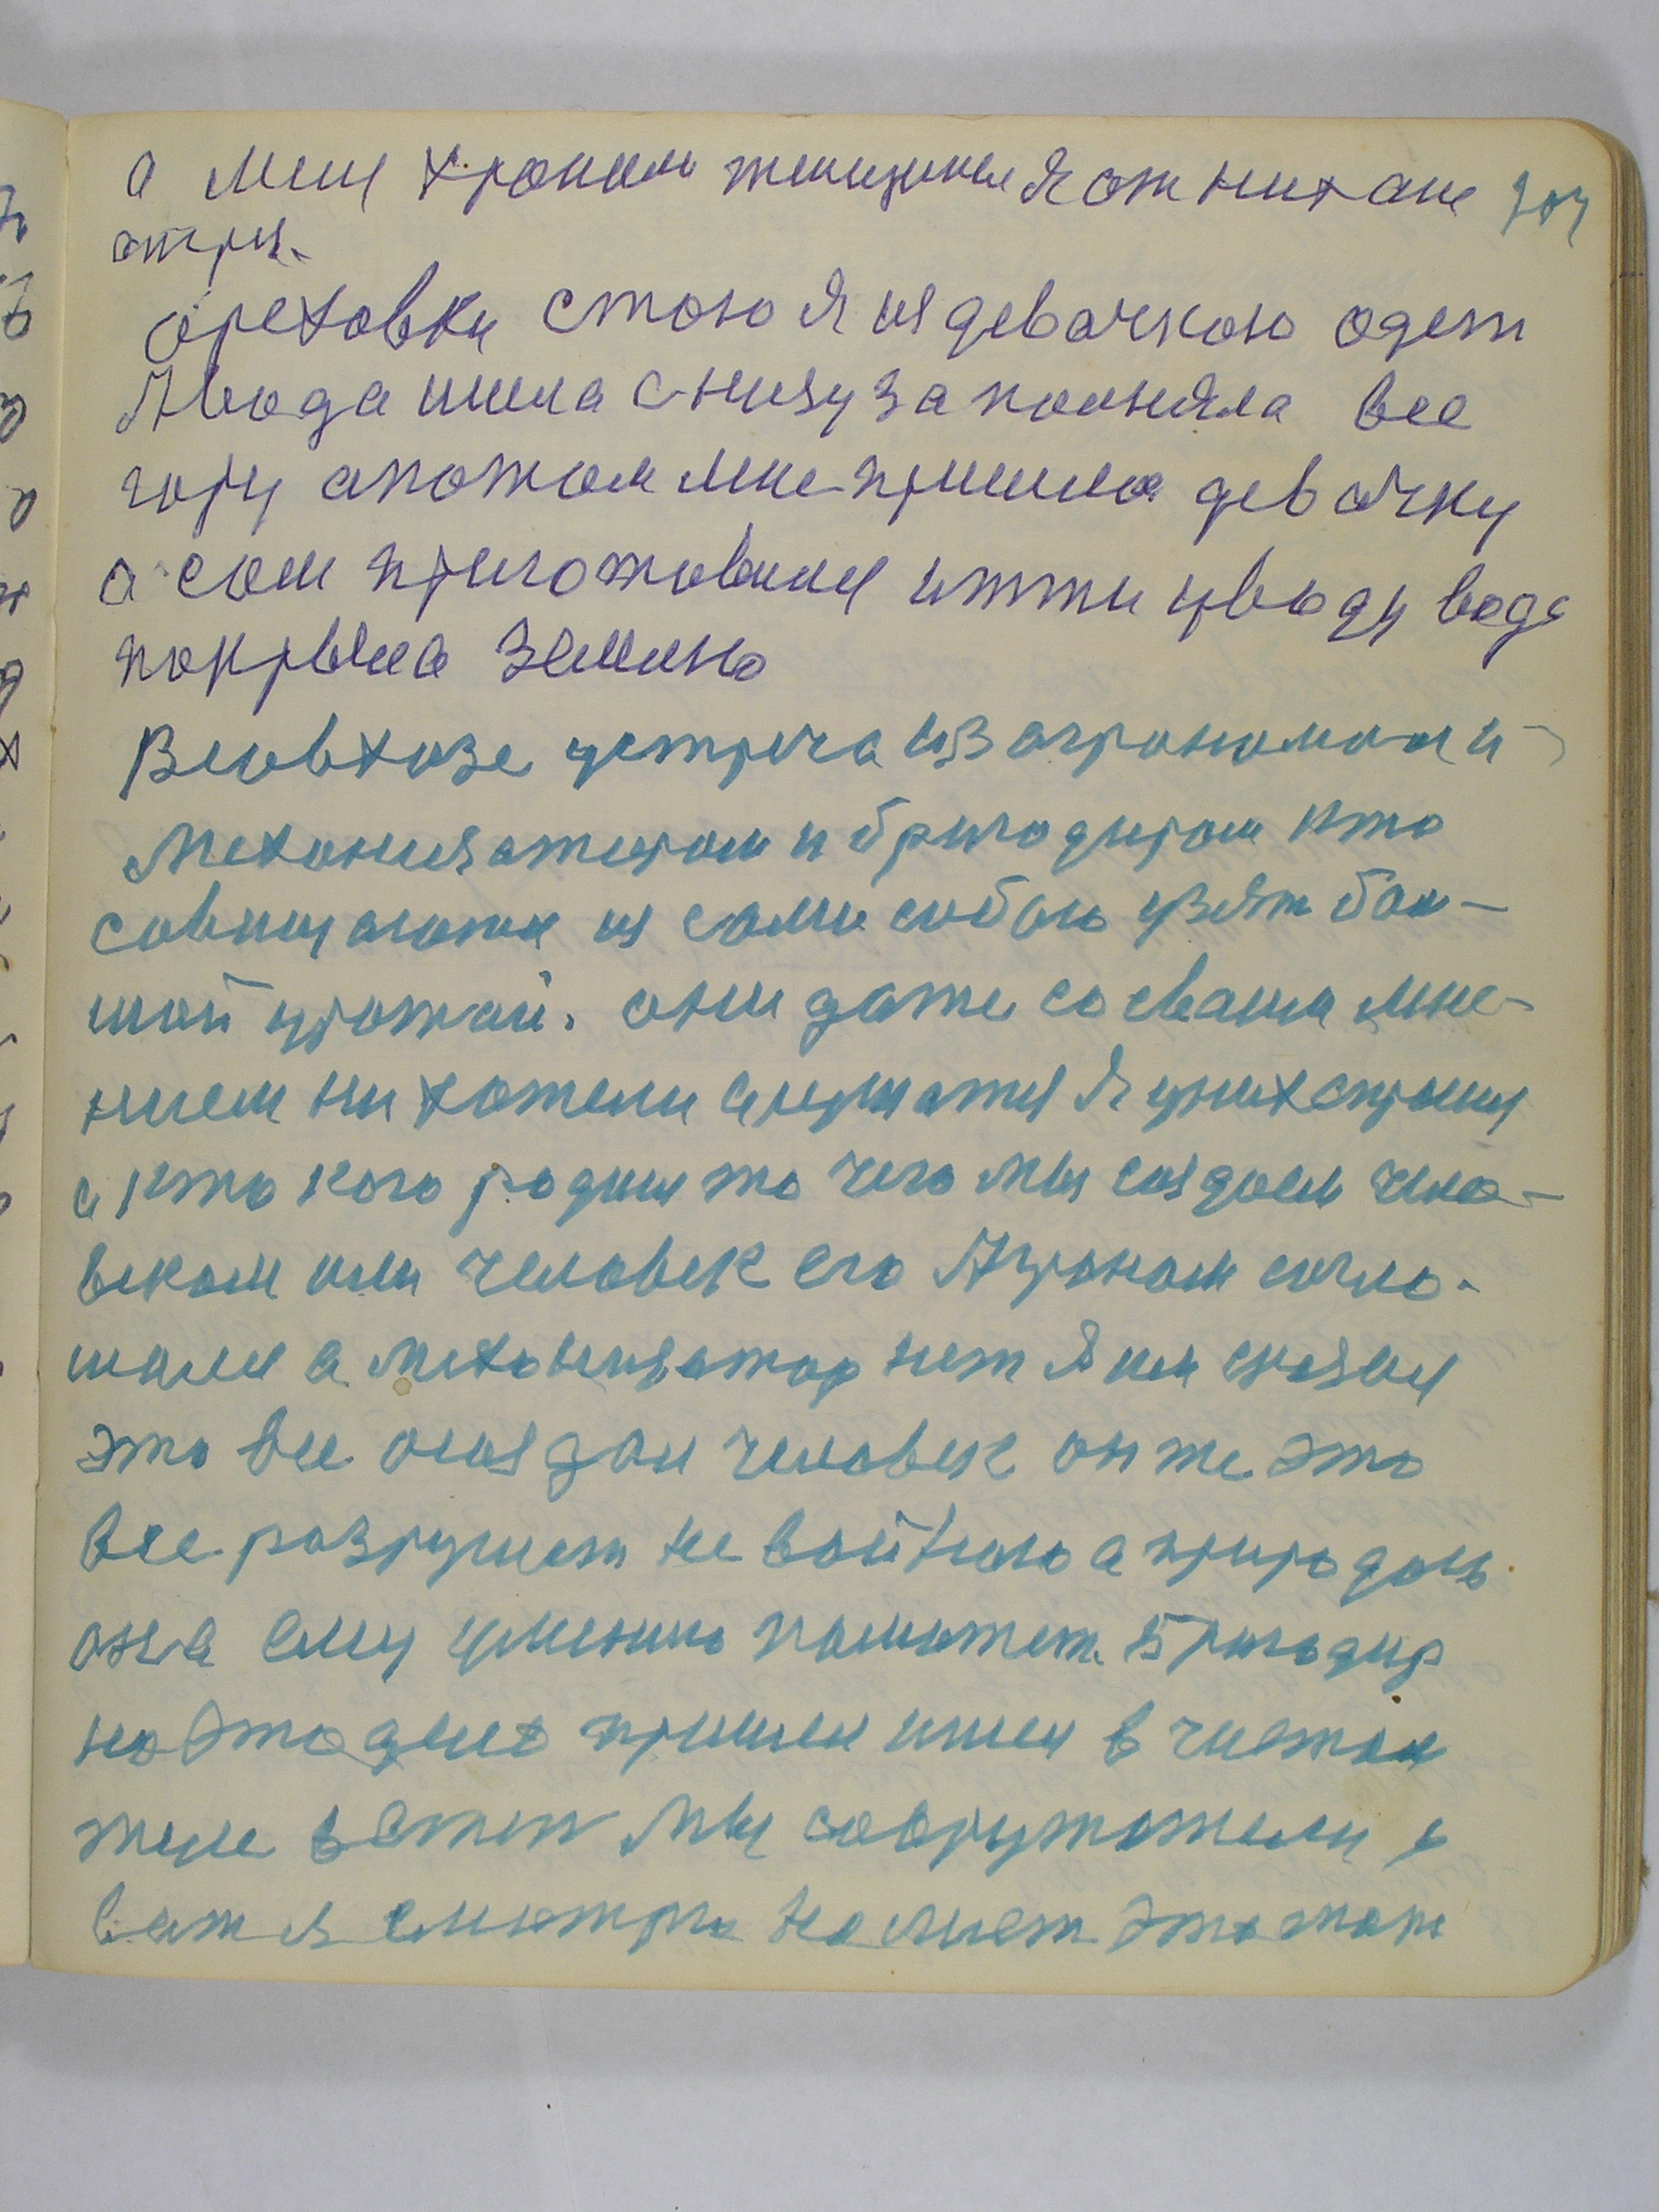 а меня хранили женщины Я от них ане
отри.
Ореховки стою я из девочкою одет
А вода шла снизу заполняла все
гору апотом мне пришла девочку
а сам приготовился итти уводу вода
покрыла землю
Всовхозе устреча изагрономом и
механизатором и бригадиром кто
совищаютя из сами собою узят бол-
шой урожай. они даже со сваим мне-
нием ни хотели слушатя Я уних спросил
а кто кого родил то чего мы создаем чело-
веком или человек его Агроном согло-
шался а механизатор нет Я им сказал
это все создал человек он же это
все разрушет не войною а природою
она ему умению поможет. Бригадир
наэтодело пришли ишли в чистом
теле встеп мы
ват я смотрю